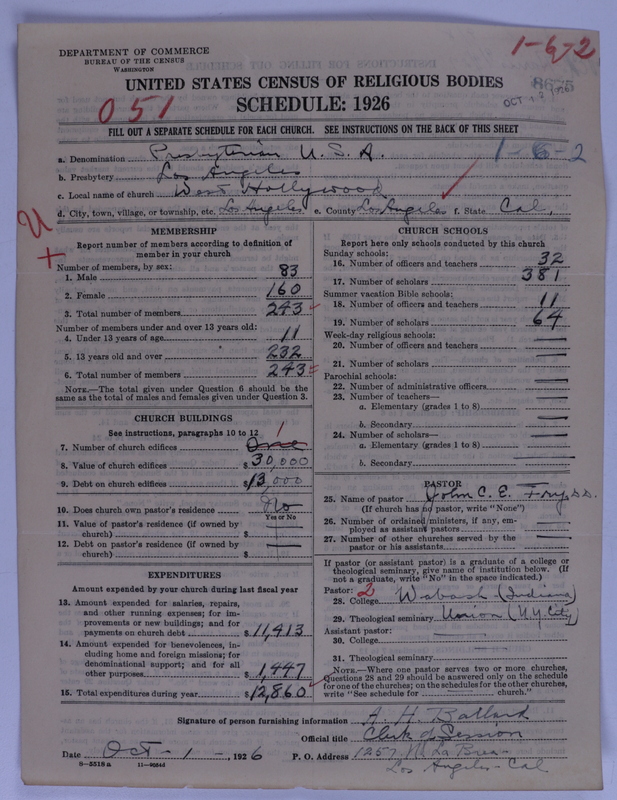 DEPARTMENT OF COMMERCE
BUREAU OF THE CENSUS
WASHINGTON
1-6-2
UNITED STATES CENSUS OF RELIGIOUS BODIES
051
SCHEDULE: 1926
OCT 12 1926
FILL OUT A SEPARATE SCHEDULE FOR EACH CHURCH. SEE INSTRUCTIONS ON THE BACK OF THIS SHEET
a. Denomination Presbyterian U.S.A. 1-6-2
b. Presbytery Los Angeles
c. Local name of church West Hollywood
d. City, town, village, or township, etc. Los Angeles e. County Los Angeles f. State Cal.
MEMBERSHIP
Report number of members according to definition of
member in your church
Number of members, by sex:
1. Male 83
2. Female 160
3. Total number of members 243
Number of members under and over 13 years old:
4. Under 13 years of age 11
5. 13 years old and over 232
6. Total number of members 243
NOTE.—The total given under Question 6 should be
same as the total of males and females given under Question 3.
CHURCH BUILDINGS
See instructions, paragraphs 10 to 12
7. Number of church edifices One 1
8. Value of church edifices $30,000
9. Debt on church edifices $13,000
10. Does church own pastor's residence No
Yes or No
11. Value of pastor's residence (if owned by
church) $
12. Debt on pastor's residence (if owned by
church) $
EXPENDITURES
Amount expended by your church during last fiscal year
13. Amount expended for salaries, repairs,
and other running expenses; for im-
provements or new buildings; and for
payments on church debt $11,413
14. Amount expended for benevolences, in-
cluding home and foreign missions; for
denominational support; and for all
other purposes $1,447
15. Total expenditures during year $12,860
CHURCH SCHOOLS
Report here only schools conducted by this church
Sunday schools:
16. Number of officers and teachers 32
17. Number of scholars 381
Summer vacation Bible schools:
18. Number of officers and teachers 11
19. Number of scholars 64
Week-day religious schools:
20. Number of officers and teachers
21. Number of scholars
Parochial schools:
22. Number of administrative officers
23. Number of teachers—
a. Elementary (grades 1 to 8)
b. Secondary
24. Number of scholars—
a. Elementary (grades 1 to 8)
b. Secondary
PASTOR
25. Name of pastor John C. E. Fry, D.D.
(If church has no pastor, write "None")
26. Number of ordained ministers, if any, em-
ployed as assistant pastors
27. Number of other churches served by the
pastor or his assistants
If pastor (or assistant pastor) is a graduate of a college or
theological seminary, give name of institution below. (If
not a graduate, write "No" in the space indicated.)
Pastor: 2
28. College Wabash (Indiana)
29. Theological seminary Union (N.Y. City)
Assistant pastor:
30. College
31. Theological seminary
NOTE.—Where one pastor serves two or more churches,
Questions 28 and 29 should be answered only on the schedule
for one of the churches; on the schedules for the other churches,
write "See schedule for church."
Signature of person furnishing information A. H. Ballard
Official title Clerk of Session
Date Oct - 1 -, 1926 P. O. Address 1257 N. La Brea -
Los Angeles - Cal
8-5518a 11-9034d